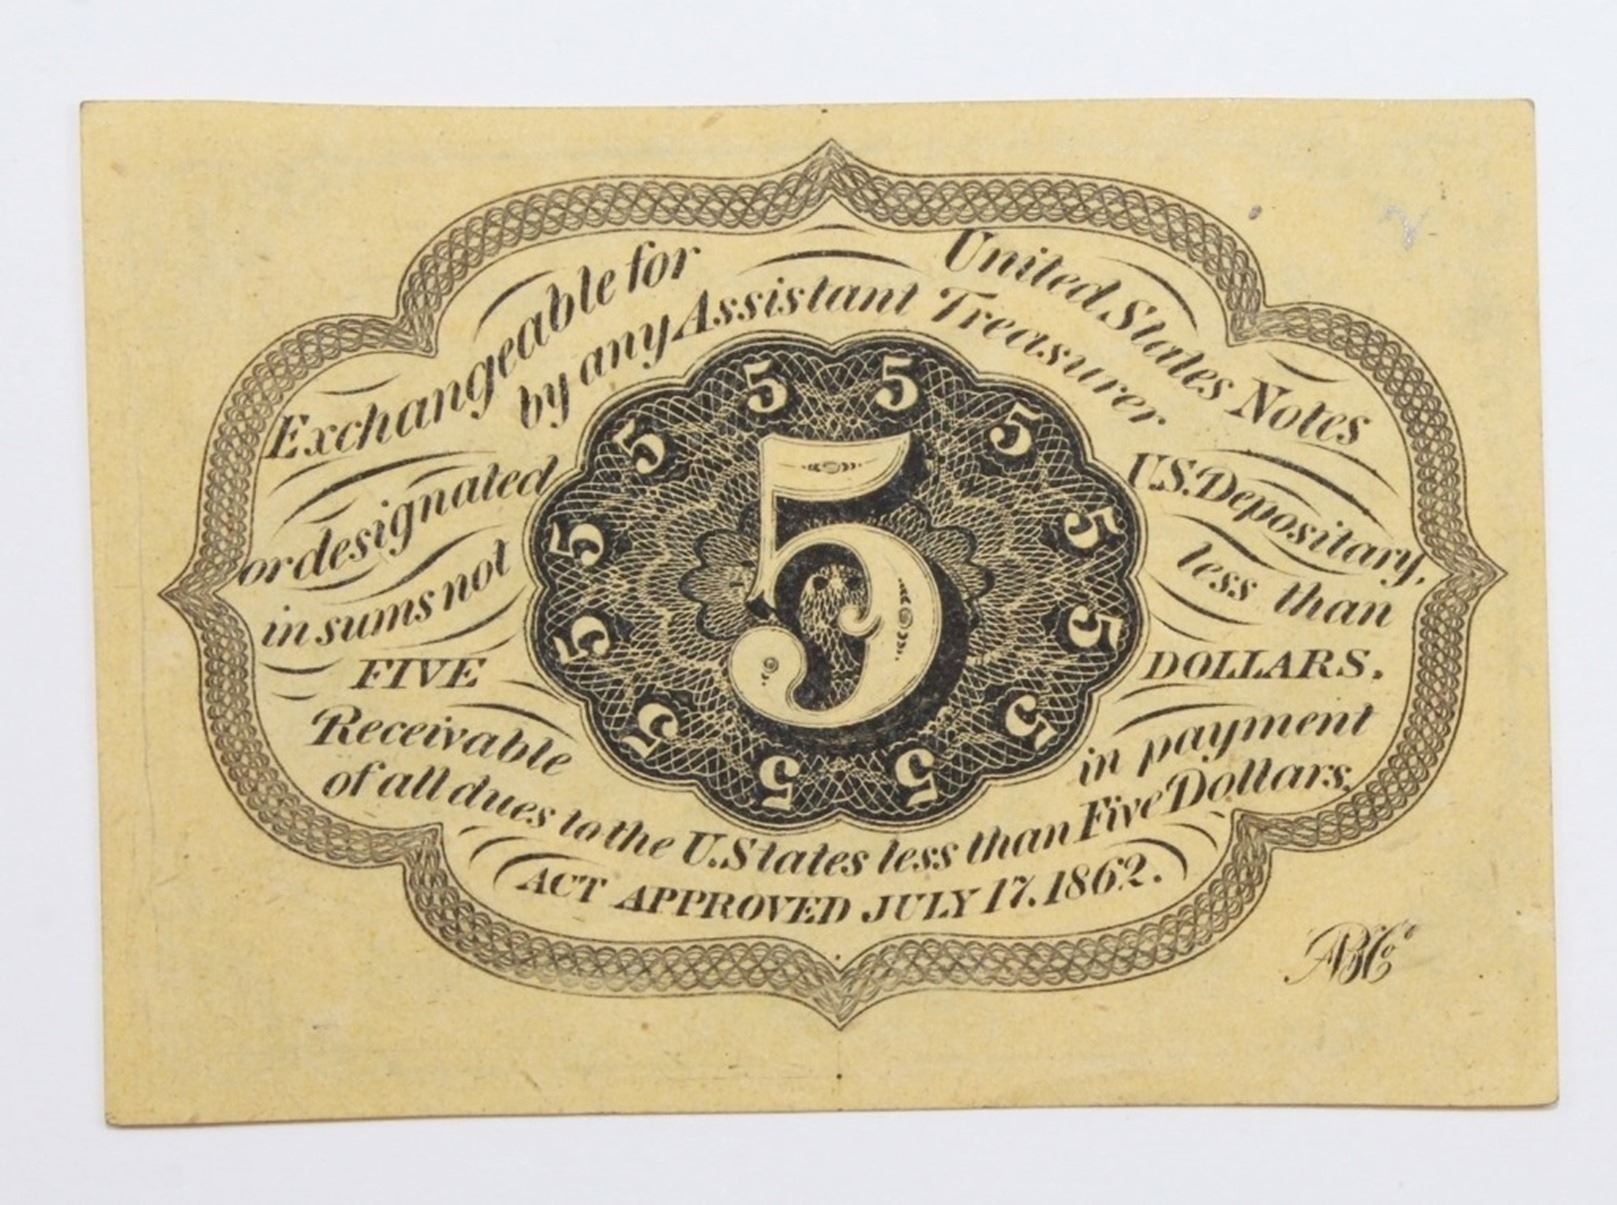 Exchangeable for United States Notes
by any Assistant Treasurer
or designated U.S. Depositary,
in sums not less than
FIVE DOLLARS.
Receivable in payment
of all dues to the U. States less than Five Dollars,
ACT APPROVED JULY 17. 1862.
5
5
5
5
5
5
5
5
5
5
5
5
5
ABCo